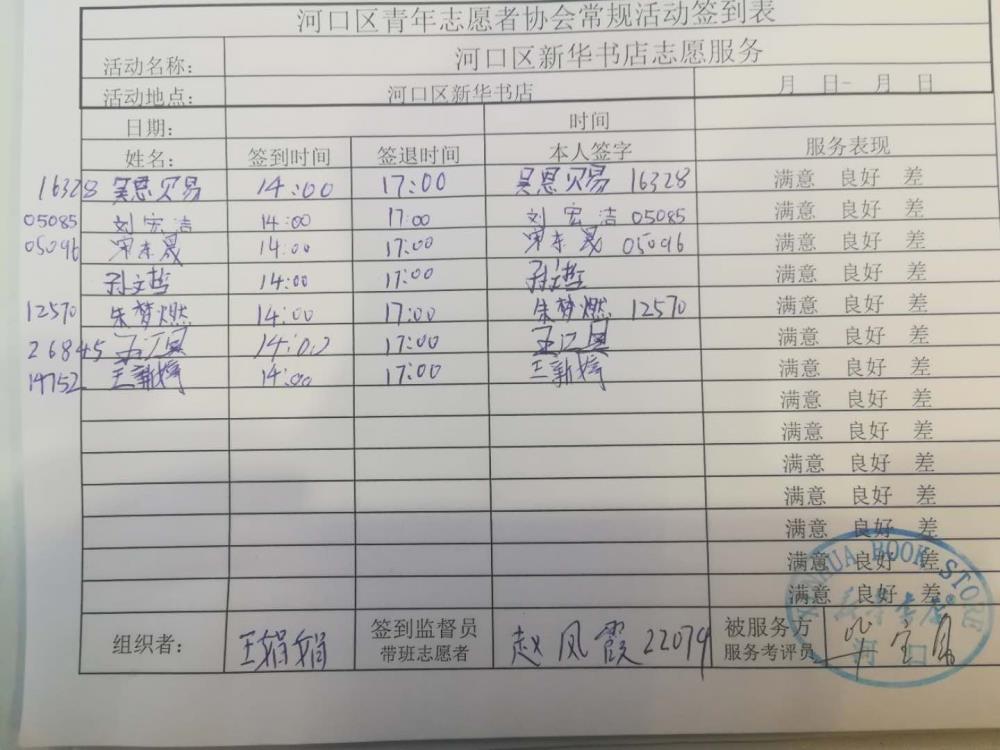 河口区青年志愿者协会常规活动签到表
活动名称： 河口区新华书店志愿服务
活动地点： 河口区新华书店 月 日- 月 日
日期： 时间
姓名： 签到时间 签退时间 本人签字 服务表现
16328 吴恩贝易 14:00 17:00 吴恩贝易 16328 满意 良好 差
05085 刘宏洁 14:00 17:00 刘宏洁 05085 满意 良好 差
05096 宋东晟 14:00 17:00 宋东晟 05096 满意 良好 差
孙文哲 14:00 17:00 孙文哲 满意 良好 差
12570 朱梦燃 14:00 17:00 朱梦燃 12570 满意 良好 差
26845 14:00 17:00 满意 良好 差
14752 王新婷 14:00 17:00 王新婷 满意 良好 差
满意 良好 差
满意 良好 差
满意 良好 差
满意 良好 差
满意 良好 差
满意 良好 差
满意 良好 差
组织者： 王娟娟 签到监督员 赵凤霞 22079 被服务方
带班志愿者 服务考评员
XINHUA BOOK STORE
新华书店
河口